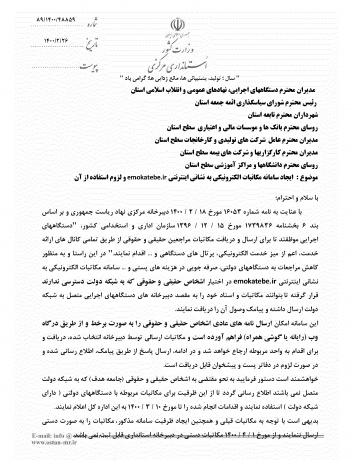 شماره ۸۹/۱۴۰۰/۴۸۸۵۹
تاریخ ۱۴۰۰/۲/۲۶
پیوست
وزارت کشور
استانداری مرکزی
" سال ؛ تولید، پشتیبانی ها، مانع زدایی ها؛ گرامی باد "
مدیران محترم دستگاههای اجرایی، نهادهای عمومی و انقلاب اسلامی استان
رئیس محترم شورای سیاستگذاری ائمه جمعه استان
شهرداران محترم تابعه استان
روسای محترم بانک ها و موسسات مالی و اعتباری سطح استان
مدیران محترم عامل شرکت های تولیدی و کارخانجات سطح استان
مدیران محترم کارگزاریها و شرکت های بیمه سطح استان
روسای محترم دانشگاهها و مراکز آموزشی سطح استان
موضوع : ایجاد سامانه مکاتبات الکترونیکی به نشانی اینترنتی emokatebe.ir و لزوم استفاده از آن
با سلام و احترام؛
با عنایت به نامه شماره ۱۶۰۵۳ مورخ ۱۸ / ۲ / ۱۴۰۰ دبیرخانه مرکزی نهاد ریاست جمهوری و بر اساس
بند ۶ بخشنامه ۱۷۳۹۸۳۶ مورخ ۱۵ / ۱۲ / ۱۳۹۶ سازمان اداری و استخدامی کشور، "دستگاههای
اجرایی موظفند تا برای ارسال و دریافت مکاتبات مراجعین حقیقی و حقوقی از طریق تمامی کانال های ارائه
خدمت، اعم از میز خدمت الکترونیکی، پرتال های دستگاهی و ... اقدام نمایند." در این راستا و به منظور
کاهش مراجعات به دستگاههای دولتی، صرفه جویی در هزینه های پستی و ... سامانه مکاتبات الکترونیکی به
نشانی اینترنتی emokatebe.ir در اختیار اشخاص حقیقی و حقوقی که به شبکه دولت دسترسی ندارند
قرار گرفته تا بتوانند مکاتبات و اسناد خود را به مقصد دبیرخانه های دستگاههای اجرایی متصل به شبکه
دولت ارسال داشته و پیامک وصول آن را دریافت نمایند.
این سامانه امکان ارسال نامه های عادی اشخاص حقیقی و حقوقی را به صورت برخط و از طریق درگاه
وب (رایانه یا گوشی همراه) فراهم آورده است و مکاتبات ارسالی توسط دبیرخانه انتخاب شده، دریافت و
برای اقدام به واحد مربوطه ارجاع خواهد شد و در ادامه، ارسال پاسخ از طریق پیامک، اطلاع رسانی شده و
در صورت لزوم در دفاتر پست و پیشخوان قابل دریافت است.
خواهشمند است دستور فرمایید به نحو مقتضی به اشخاص حقیقی و حقوقی (جامعه هدف) که به شبکه دولت
متصل نمی باشند اطلاع رسانی گردد تا از این ظرفیت برای مکاتبات مربوطه با دستگاههای دولتی ( دارای
شبکه دولت ) استفاده نمایند و اقدامات انجام شده را تا مورخ ۱۰ / ۳ / ۱۴۰۰ به این اداره کل اعلام نمایند.
بدیهی است با توجه به مکاتبات قبلی و همچنین ایجاد ظرفیت سامانه مذکور، مکاتبات را به صورت دستی
ارسال ننمایند و از مورخ ۱ / ۴ / ۱۴۰۰ مکاتبات دستی در دبیرخانه استانداری قابل ثبت نمی باشد
E-mail: info @
www.ostan-mr.ir